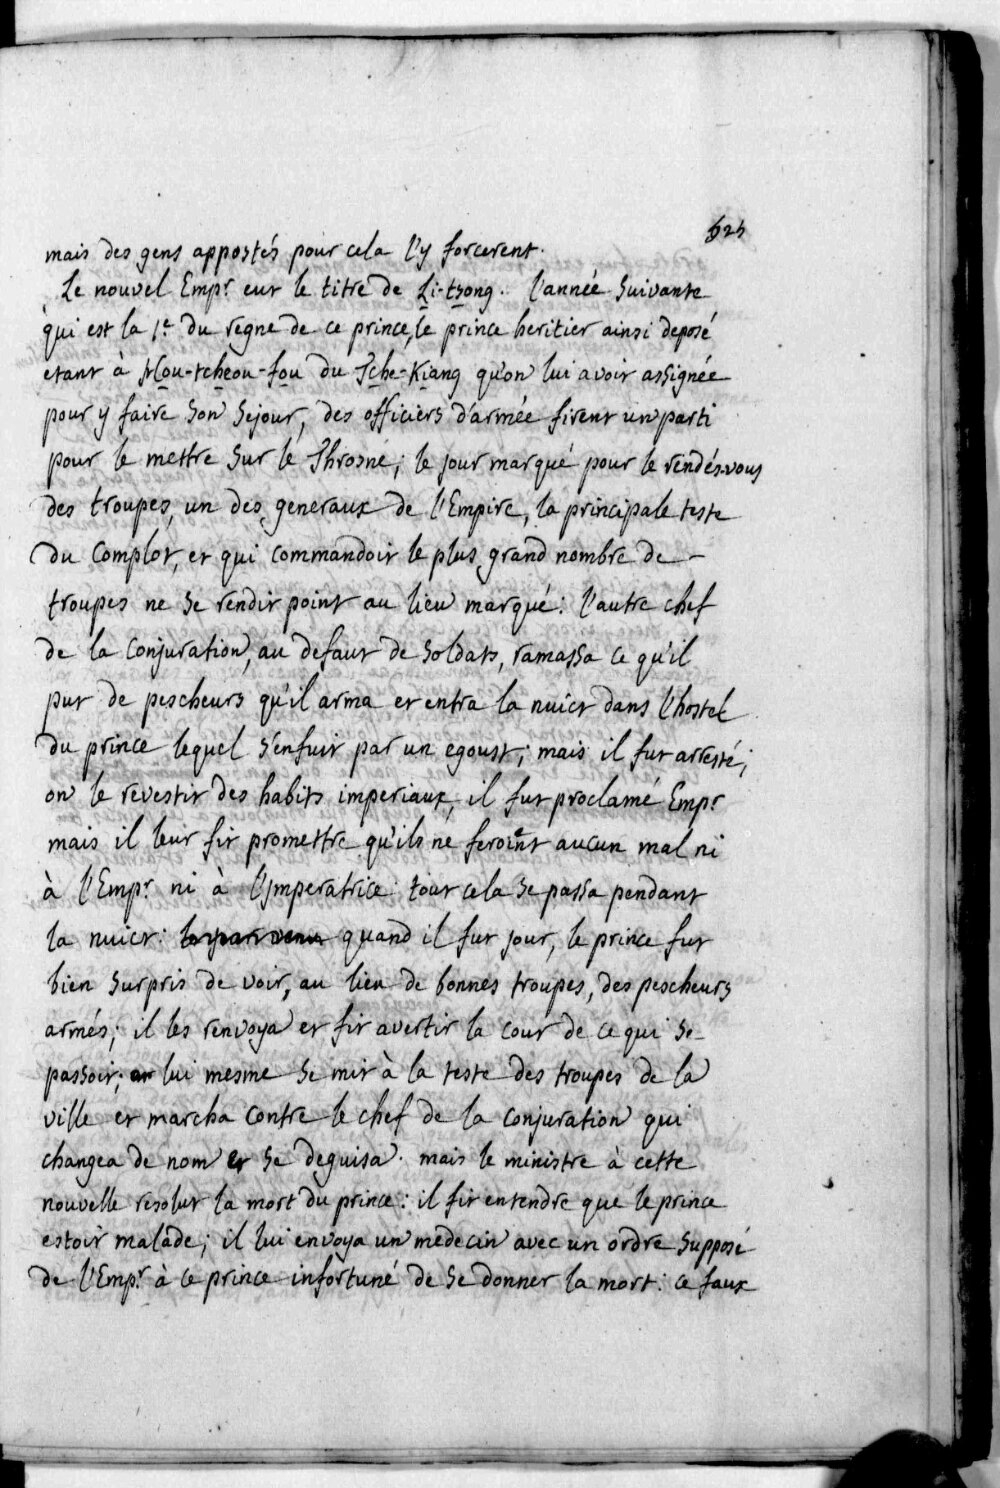 625
mais des gens appostés pour cela l'y forcerent.
Le nouvel Empr eut le titre de Li-tsong. l'année suivante
qui est la 1e du regne de ce prince, le prince heritier ainsi deposé
etant à Hou-tcheou-fou du Tche-Kiang qu'on lui avoit assignée
pour y faire son sejour, des officiers d'armée firent un parti
pour le mettre sur le Throsne; le jour marqué pour le rendés-vous
des troupes, un des generaux de l'Empire, la principale teste
du complot, et qui commandoit le plus grand nombre de
troupes ne se rendit point au lieu marqué: l'autre chef
de la conjuration, au defaut de soldats, ramassa ce qu'il
put de pescheurs qu'il arma et entra la nuict dans l'hostel
du prince lequel s'enfuit par un egoust; mais il fut arresté;
on le revestit des habits imperiaux, il fut proclamé Empr
mais il leur fit promettre qu'ils ne feroient aucun mal ni
à l'Empr ni à l'Imperatrice: tout cela se passa pendant
la nuict: quand il fut jour, le prince fut
bien surpris de voir, au lieu de bonnes troupes, des pescheurs
armés; il les renvoya et fit avertir la cour de ce qui se
passoit; lui mesme se mit à la teste des troupes de la
ville et marcha contre le chef de la conjuration qui
changea de nom et se deguisa. mais le ministre à cette
nouvelle resolut la mort du prince: il fit entendre que le prince
estoit malade; il lui envoya un medecin avec un ordre supposé
de l'Empr à ce prince infortuné de se donner la mort: ce faux